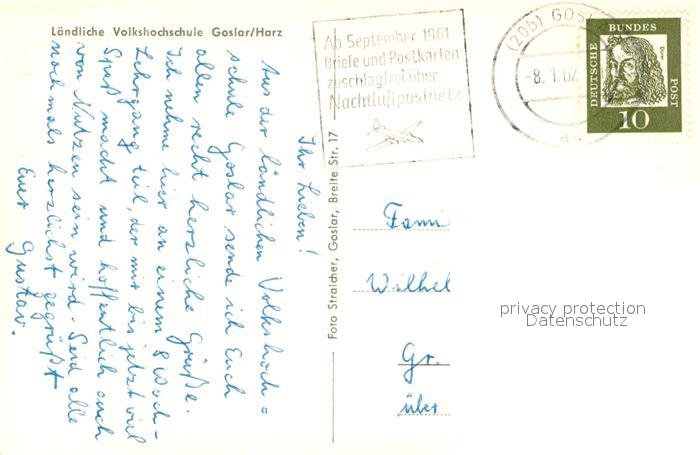 Ländliche Volkshochschule Goslar/Harz
Ab September 1961
Briefe und Postkarten
zuschlagfrei über
Nachtluftpostnetz
(20b) GOSL
-8.1.62
a
DEUTSCHE
BUNDES
POST
Dürer
10
Ihr Lieben!
Aus der ländlichen Volkshoch=
schule Goslar sende ich Euch
allen recht herzliche Grüße.
Ich nehme hier an einem 8 Woch-
Lehrgang teil, der mir bis jetzt viel
Spaß macht und hoffentlich auch
von Nutzen sein wird. Seid alle
nochmals herzlichst gegrüßt
Euer Gustav.
Foto Straicher, Goslar, Breite Str. 17
Fami
Wilhel
Gr.
über
privacy protection
Datenschutz